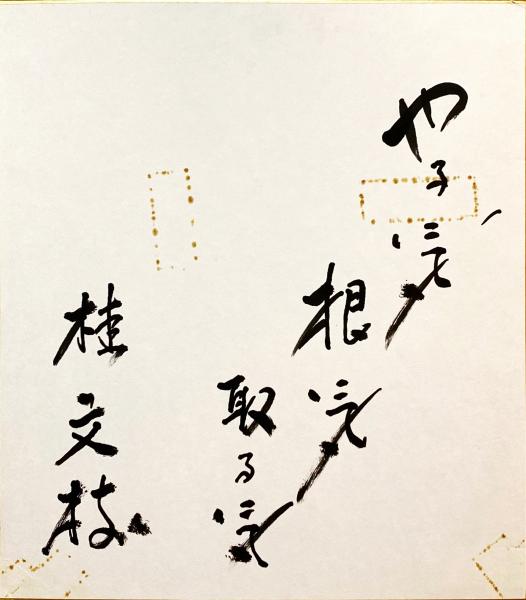 やる気
根気
取る気
桂文枝